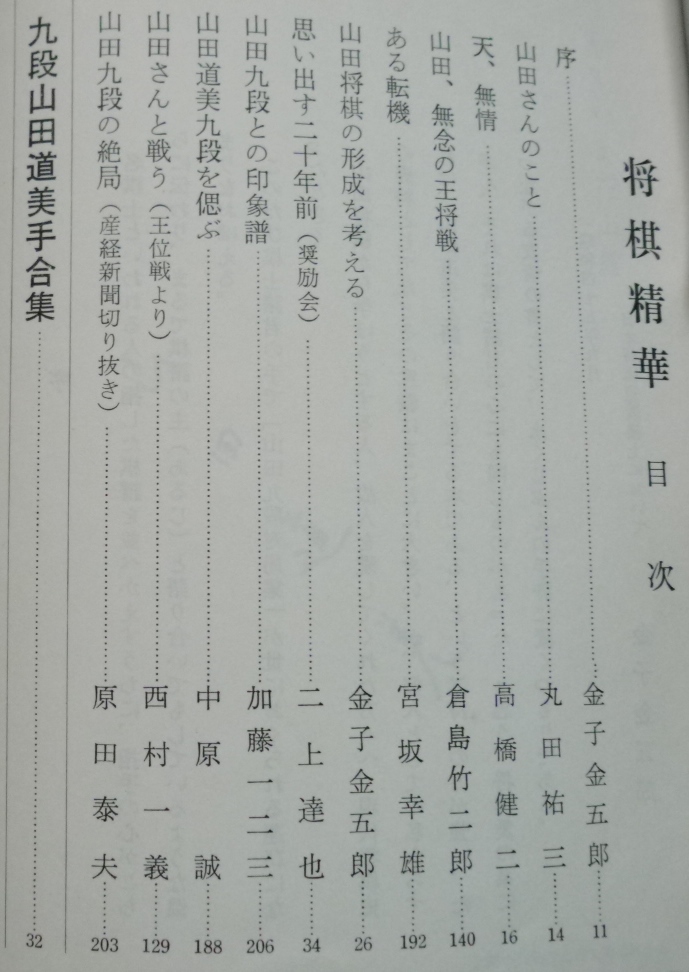 将棋精華 目次
序……金子金五郎……11
山田さんのこと……丸田祐三……14
天、無情……高橋健二……16
山田、無念の王将戦……倉島竹二郎……140
ある転機……宮坂幸雄……192
山田将棋の形成を考える……金子金五郎……26
思い出す二十年前（奨励会）……二上達也……34
山田九段との印象譜……加藤一二三……206
山田道美九段を偲ぶ……中原誠……188
山田さんと戦う（王位戦より）……西村一義……129
山田九段の絶局（産経新聞切り抜き）……原田泰夫……203
九段山田道美手合集……32